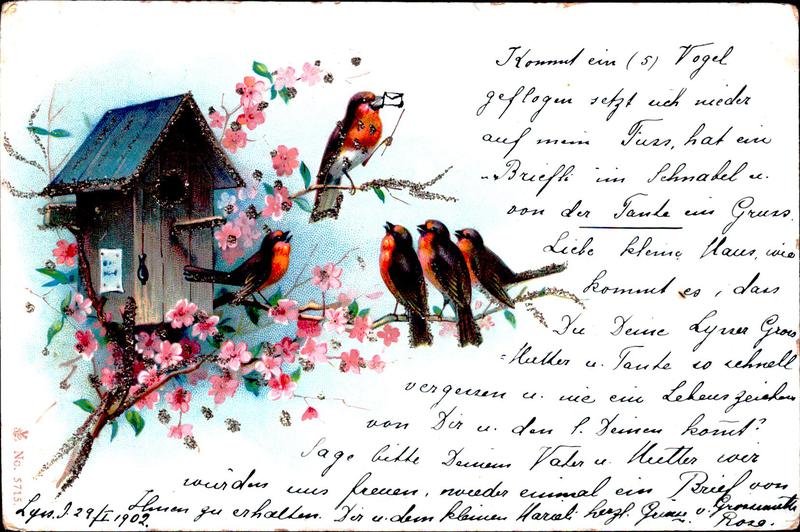 Kommt ein (5) Vogel
geflogen setzt sich nieder
auf mein Fuss, hat ein
„Briefli im Schnabel u.
von der Tante ein Gruss.
Liebe kleine Maus, wie
kommt es, dass
Du Deine Lysser Gross
=Mutter u. Tante so schnell
vergessen u. nie ein Lebenszeichen
von Dir u. den l. Deinen komt?
Sage bitte Deinem Vater u. Mutter wir
würden uns freuen, wieder einmal ein Brief von
Ihnen zu erhalten. Dir u. dem kleinen Marieli herzl. Grüsse v. Grossmutter
Rosa.
Lyss. d. 29/I 1902.
No. 5715